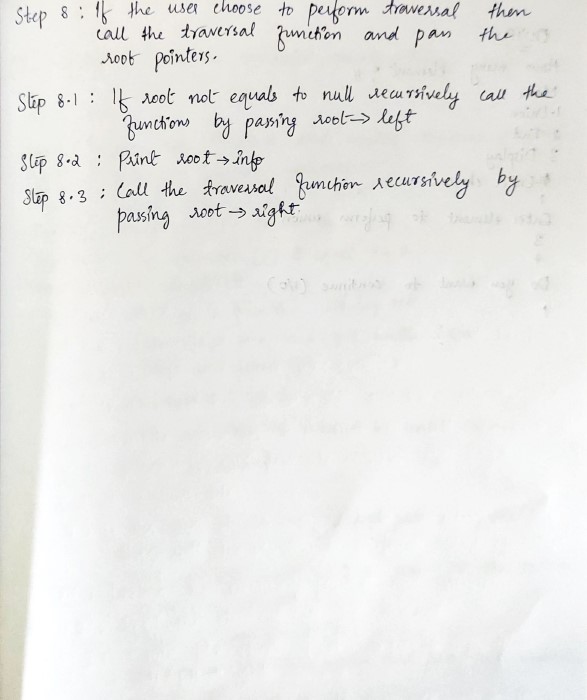 Step 8 : If the user choose to perform traversal then
call the traversal function and pan the
root pointers.
Step 8.1 : If root not equals to null recursively call the
functions by passing root → left
Step 8.2 : Print root → info
Step 8.3 : Call the traversal function recursively by
passing root → right.